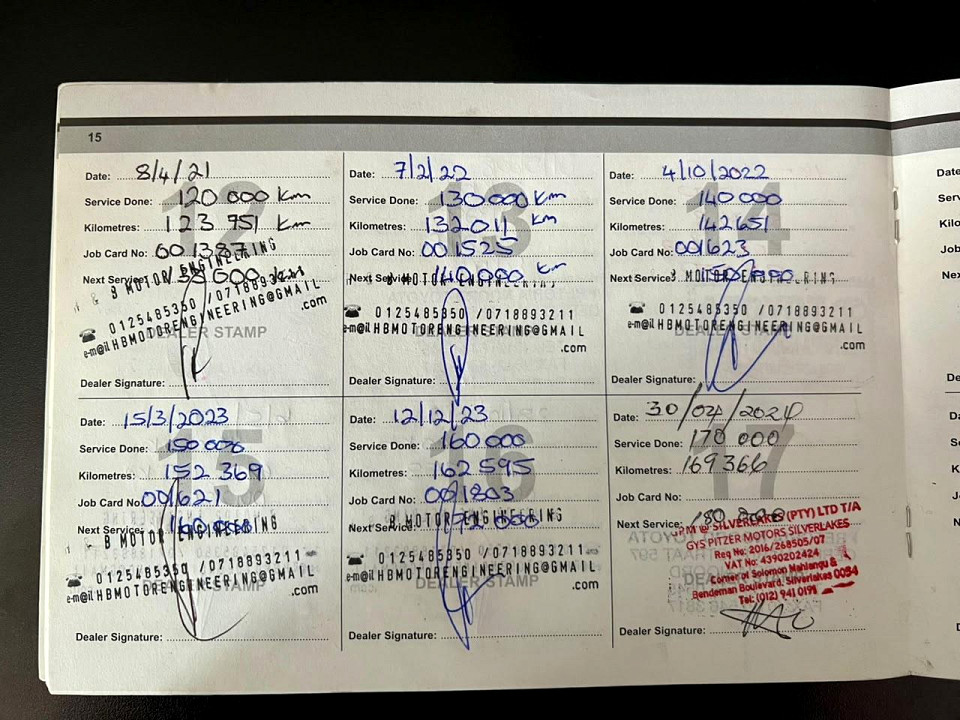 15
Date: 8/4/21
Service Done: 120 000 Km
Kilometres: 123 751 Km
Job Card No: 001387
Next Service:
B MOTOR ENGINEERING
0125485350 /0718893211
e-m@il HBMOTORENGINEERING@GMAIL
.com
DEALER STAMP
Dealer Signature:
Date: 7/2/22
Service Done: 130000 Km
Kilometres: 132011 Km
Job Card No: 001525
Next Service: 140000 Km
B MOTOR ENGINEERING
0125485350 /0718893211
e-m@il HBMOTORENGINEERING@GMAIL
.com
DEALER STAMP
Dealer Signature:
13
Date: 4/10/2022
Service Done: 140000
Kilometres: 142651
Job Card No: 001623
Next Service:
MOTOR ENGINEERING
0125485350 /0718893211
e-m@il HBMOTORENGINEERING@GMAIL
.com
DEALER STAMP
Dealer Signature:
14
Date: 15/3/2023
Service Done: 150 000
Kilometres: 152 369
Job Card No: 001621
Next Service:
B MOTOR ENGINEERING
0125485350 /0718893211
e-m@il HBMOTORENGINEERING@GMAIL
.com
DEALER STAMP
Dealer Signature:
15
Date: 12/12/23
Service Done: 160000
Kilometres: 162595
Job Card No: 001803
Next Service:
B MOTOR ENGINEERING
0125485350 /0718893211
e-m@il HBMOTORENGINEERING@GMAIL
.com
DEALER STAMP
Dealer Signature:
16
Date: 30/04/2024
Service Done: 170 000
Kilometres: 169366
Job Card No:
Next Service: 180 000
@ SILVERLAKES (PTY) LTD T/A
GYS PITZER MOTORS SILVERLAKES
Reg No: 2016/268505/07
VAT No: 4390202424
Corner of Solomon Mahlangu &
Bendeman Boulevard, Silverlakes 0054
Tel: (012) 941 0195
Dealer Signature:
17